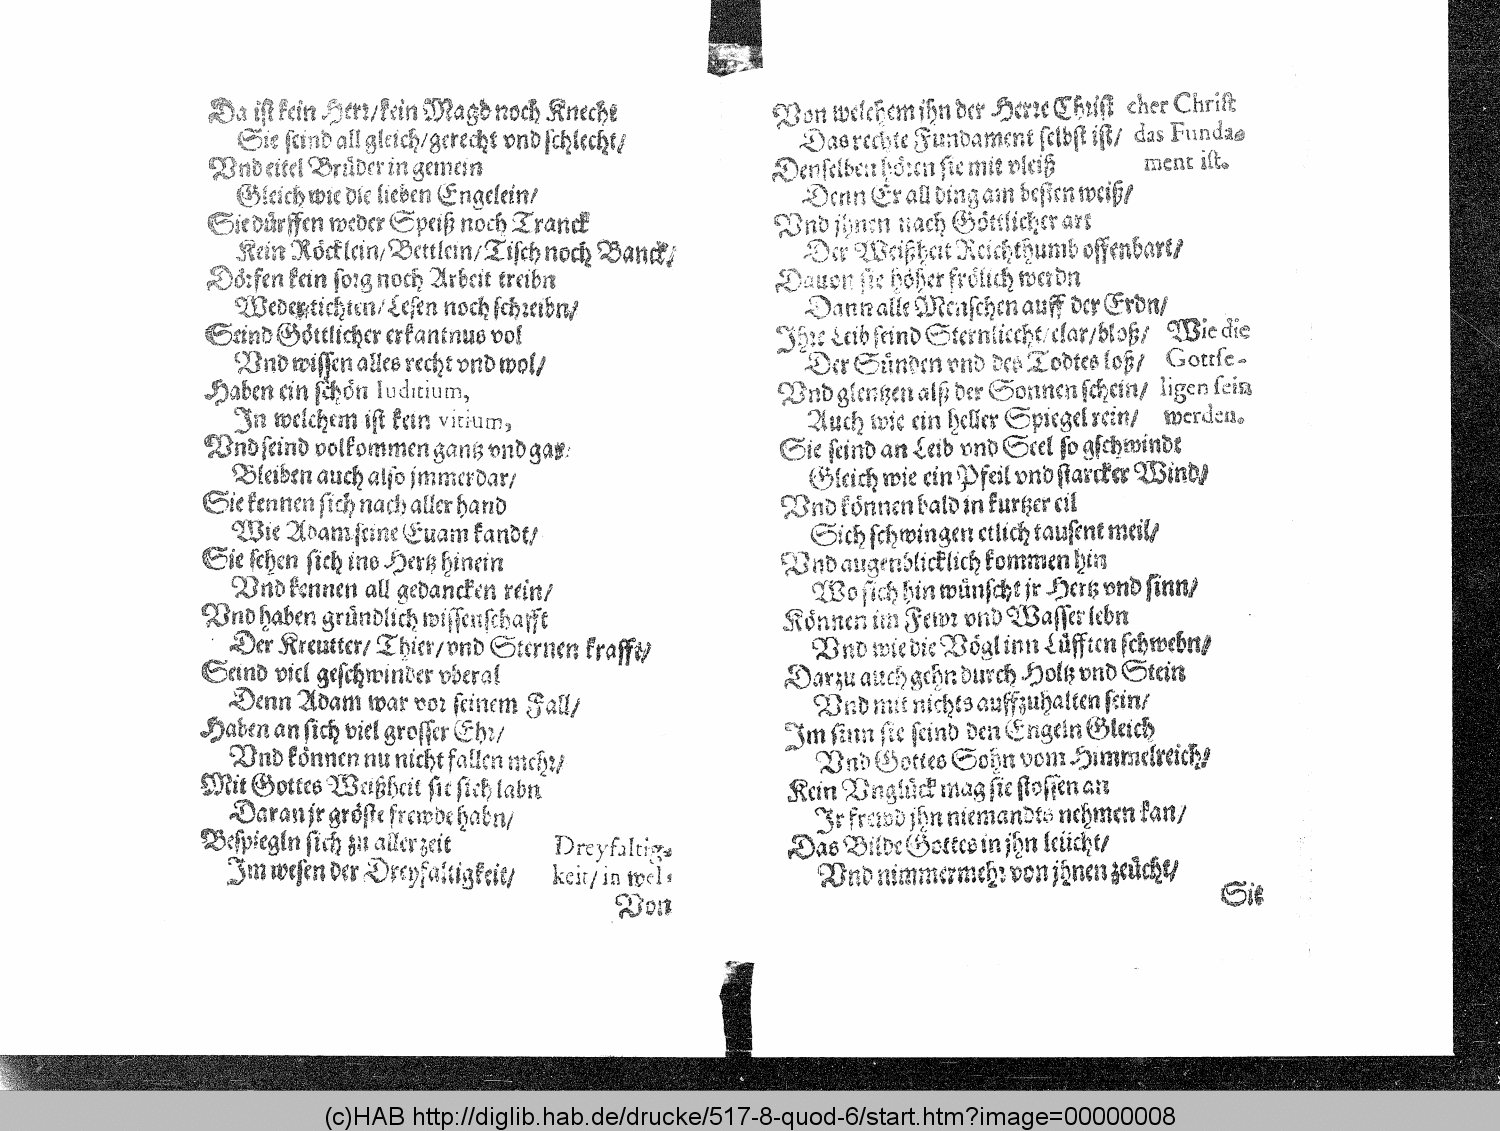 Da ist kein Herr/kein Magd noch Knecht
Sie seind all gleich/gerecht vnd schlecht/
Vnd eitel Brüder in gemein
Gleich wie die lieben Engelein/
Sie dürffen weder Speiß noch Tranck
Kein Röcklein/Bettlein/Tisch noch Banck/
Dörfen kein sorg noch Arbeit treibn
Weder tichten/Lesen noch schreibn/
Seind Göttlicher erkantnus vol
Vnd wissen alles recht vnd wol/
Haben ein schön Iudicium,
In welchem ist kein vitium,
Vnd seind volkommen gantz vnd gar/
Bleiben auch also jmmerdar/
Sie kennen sich nach aller hand
Wie Adam seine Euam kandt/
Sie sehen sich ins Hertz hinein
Vnd kennen all gedancken rein/
Vnd haben gründlich wissenschafft
Der Kreutter/ Thier/vnd Sternen krafft/
Seind viel geschwinder vberal
Denn Adam war vor seinem Fall/
Haben an sich viel grosser Ehr/
Vnd können nu nicht fallen mehr/
Mit Gottes Weißheit sie sich labn
Daran jr gröste frewde habn/
Bespiegln sich zu aller zeit
Im wesen der Dreyfaltigkeit/
Dreyfaltig-
keit/in wel-
Von
Von welchem ihn der Herre Christ
Das rechte Fundament selbst ist/
Denselben hören sie mit vleiß
Denn Er all ding am besten weiß/
Vnd jhnen nach Göttlicher art
Der Weißheit Reichthumb offenbart/
Dauon sie höher frölich werdn
Dann alle Menschen auff der Erdn/
Ihre Leib seind Sternliecht/clar/bloß/
Der Sünden vnd des Todtes loß/
Vnd glentzen alß der Sonnen schein/
Auch wie ein heller Spiegel rein/
Sie seind an Leib vnd Seel so gschwindt
Gleich wie ein Pfeil vnd starcker Wind/
Vnd können bald in kurtzer eil
Sich schwingen etlich tausent meil/
Vnd augenblicklich kommen hin
Wo sich hin wünscht jr Hertz vnd sinn/
Können im Fewr vnd Wasser lebn
Vnd wie die Vögl inn Lüfften schwebn/
Darzu auch gehn durch Holtz vnd Stein
Vnd mit nichts auffzuhalten sein/
Im sinn sie seind den Engeln Gleich
Vnd Gottes Sohn vom Himmelreich/
Kein Vnglück mag sie stossen an
Ir frewd jhn niemandts nehmen kan/
Das Bilde Gottes in jhn leücht/
Vnd nimmermehr von jhnen zeücht/
cher Christ
das Funda-
ment ist.
Wie die
Gottse-
ligen sein
werden.
Sie
(c)HAB http://diglib.hab.de/drucke/517-8-quod-6/start.htm?image=00000008